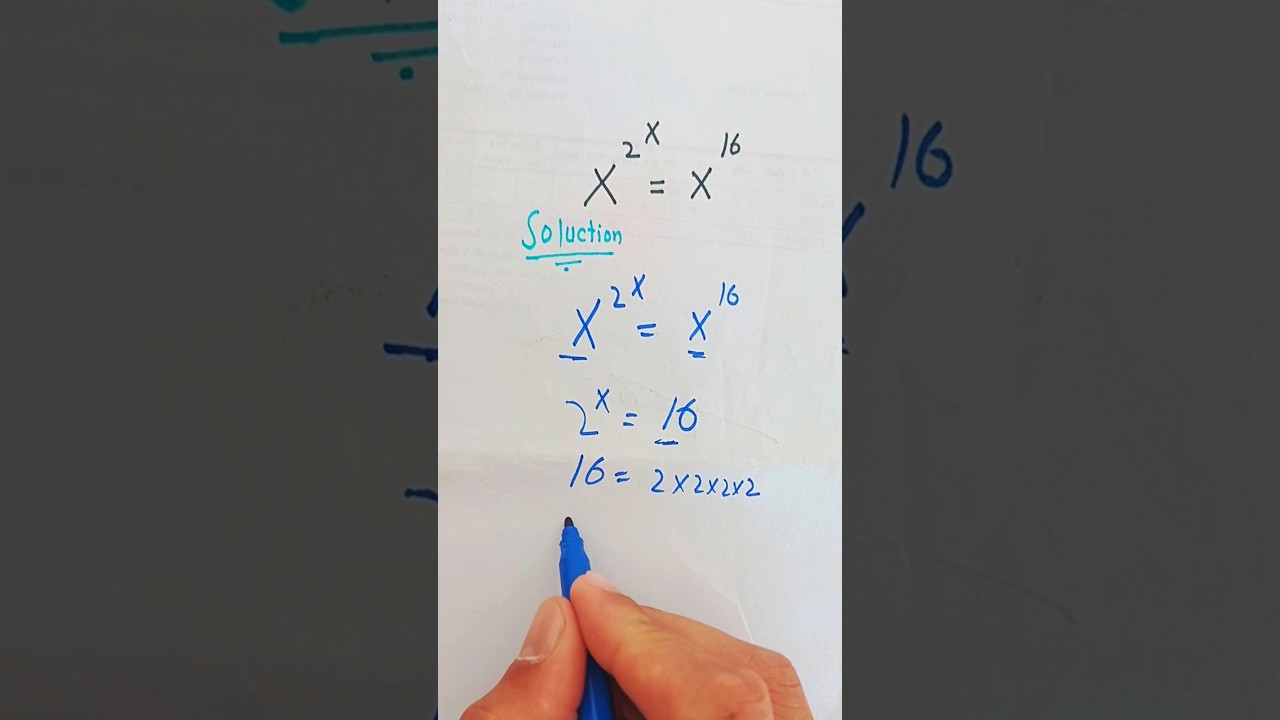 X^2^X = X^16
Soluction
X^2^X = X^16
2^X = 16
16 = 2×2×2×2
16